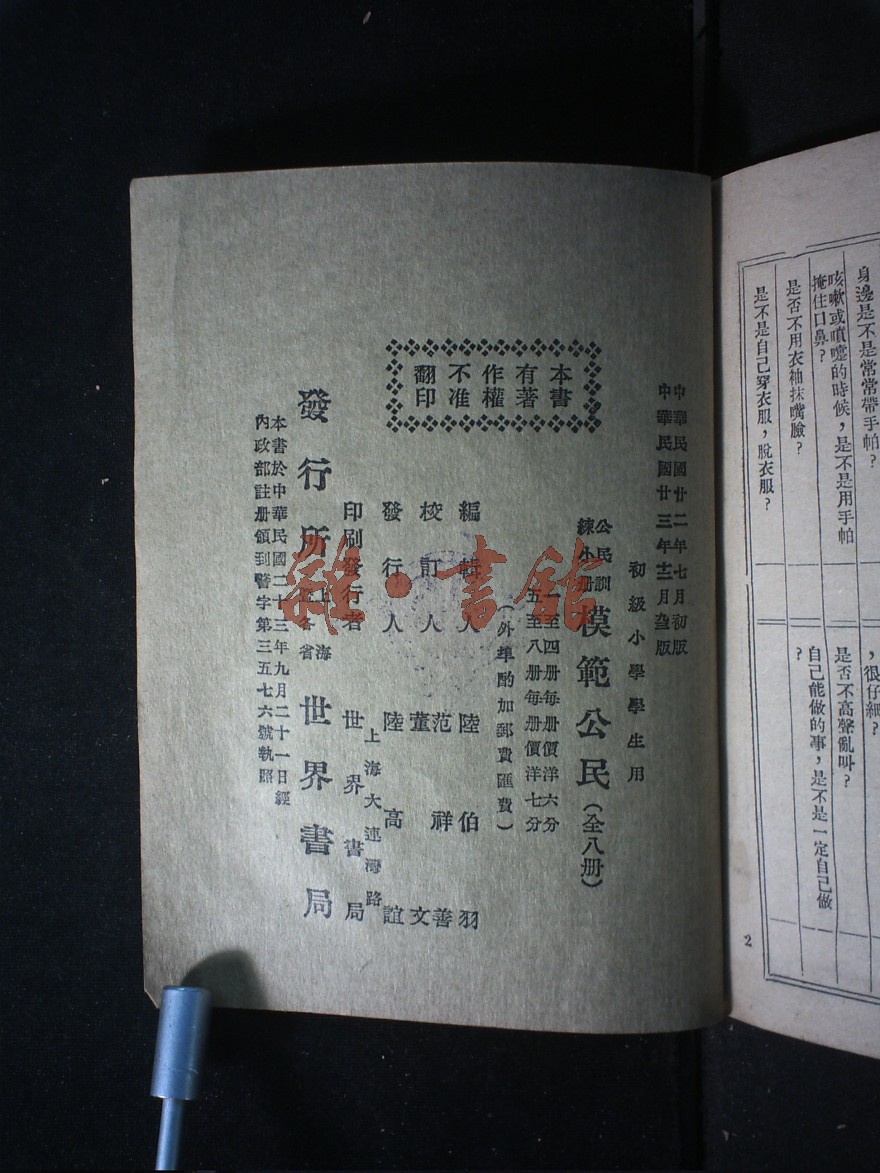 身邊是不是常常帶手帕?
咳嗽或噴嚏的時候,是不是用手帕
掩住口鼻?
是否不用衣袖抹嘴臉?
是不是自己穿衣服,脫衣服?
,很仔細?
是否不高聲亂叫?
自己能做的事,是不是一定自己做
?
2
中華民國廿二年七月初版
中華民國廿三年十二月叁版
初級小學學生用
公民訓
練小册
模範公民(全八册)
一至四册每册價洋六分
五至八册每册價洋七分
(外埠酌加郵費匯費)
本書
有著
作權
不准
翻印
編輯人 陸伯羽
校訂人 范祥善
董文
發行人 陸高誼
上海大連灣路
印刷發行者 世界書局
發行所 上海 各省 世界書局
本書於中華民國二十三年九月二十一日經
內政部註册領到警字第三五七六號執照
雜·書館